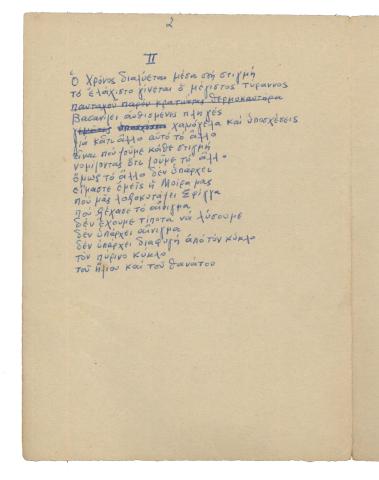 2
II
Ὁ Χρόνος διαλύεται μέσα στή στιγμή
τό ἐλάχιστο γίνεται ὁ μέγιστος τύραννος
πανταχοῦ παρών κρατώντας θερμοκαυτήρα
Βασανίζει ἀνθισμένες πληγές
γεμάτος ὑποσχέσεις χαμόγελα καί ὑποσχέσεις
γιά κάτι ἄλλο αὐτό τό ἄλλο
εἶναι πού ζοῦμε κάθε στιγμή
νομίζοντας ὅτι ζοῦμε τό ἄλλο
ὅμως τό ἄλλο δέν ὑπάρχει
εἴμαστε ἐμεῖς ἡ Μοίρα μας
πού μᾶς λοξοκοιτάζει Σφίγγα
πού ξέχασε τό αἴνιγμα
δέν ἔχουμε τίποτα νά λύσουμε
δέν ὑπάρχει αἴνιγμα
δέν ὑπάρχει διαφυγή ἀπό τόν κύκλο
τόν πύρινο κύκλο
τοῦ ἥλιου καί τοῦ θανάτου